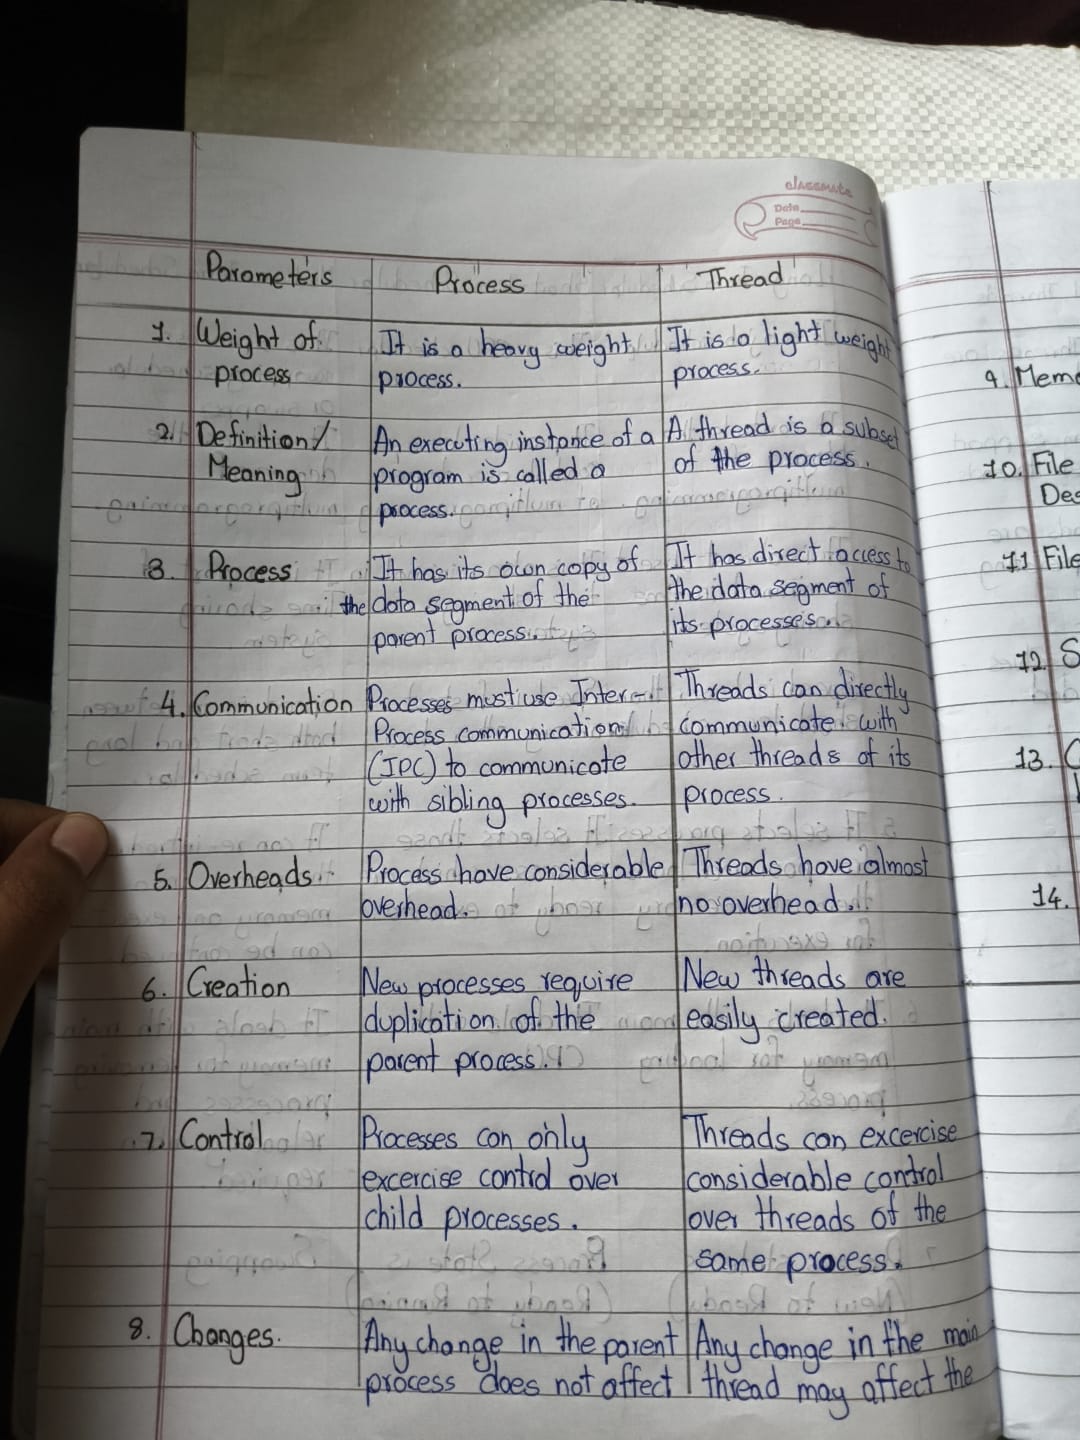 classmate
Date
Page
Parameters Process Thread
1. Weight of It is a heavy weight It is a light weight
process process. process.
2. Definition/ An executing instance of a A thread is a subset
Meaning program is called a of the process.
process.
3. Process It has its own copy of It has direct access to
the data segment of the the data segment of
parent process. its processes.
4. Communication Processes must use Inter- Threads can directly
Process communication communicate with
(IPC) to communicate other threads of its
with sibling processes. process.
5. Overheads Process have considerable Threads have almost
overhead. no overhead.
6. Creation New processes require New threads are
duplication of the easily created.
parent process.
7. Control Processes can only Threads can excercise
excercise control over considerable control
child processes. over threads of the
same process.
8. Changes. Any change in the parent Any change in the main
process does not affect thread may affect the
9. Mem
10. File
Des
11 File
12. S
13. C
14.